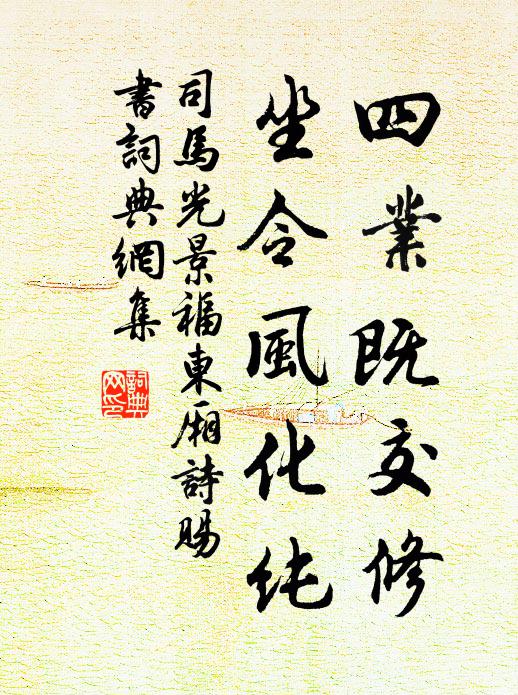 四業既交修
坐令風化純
司馬光景福東廂詩賜
書詞典網集
詞典
网印